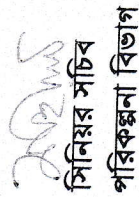 সিনিয়র সচিব
পরিকল্পনা বিভাগ